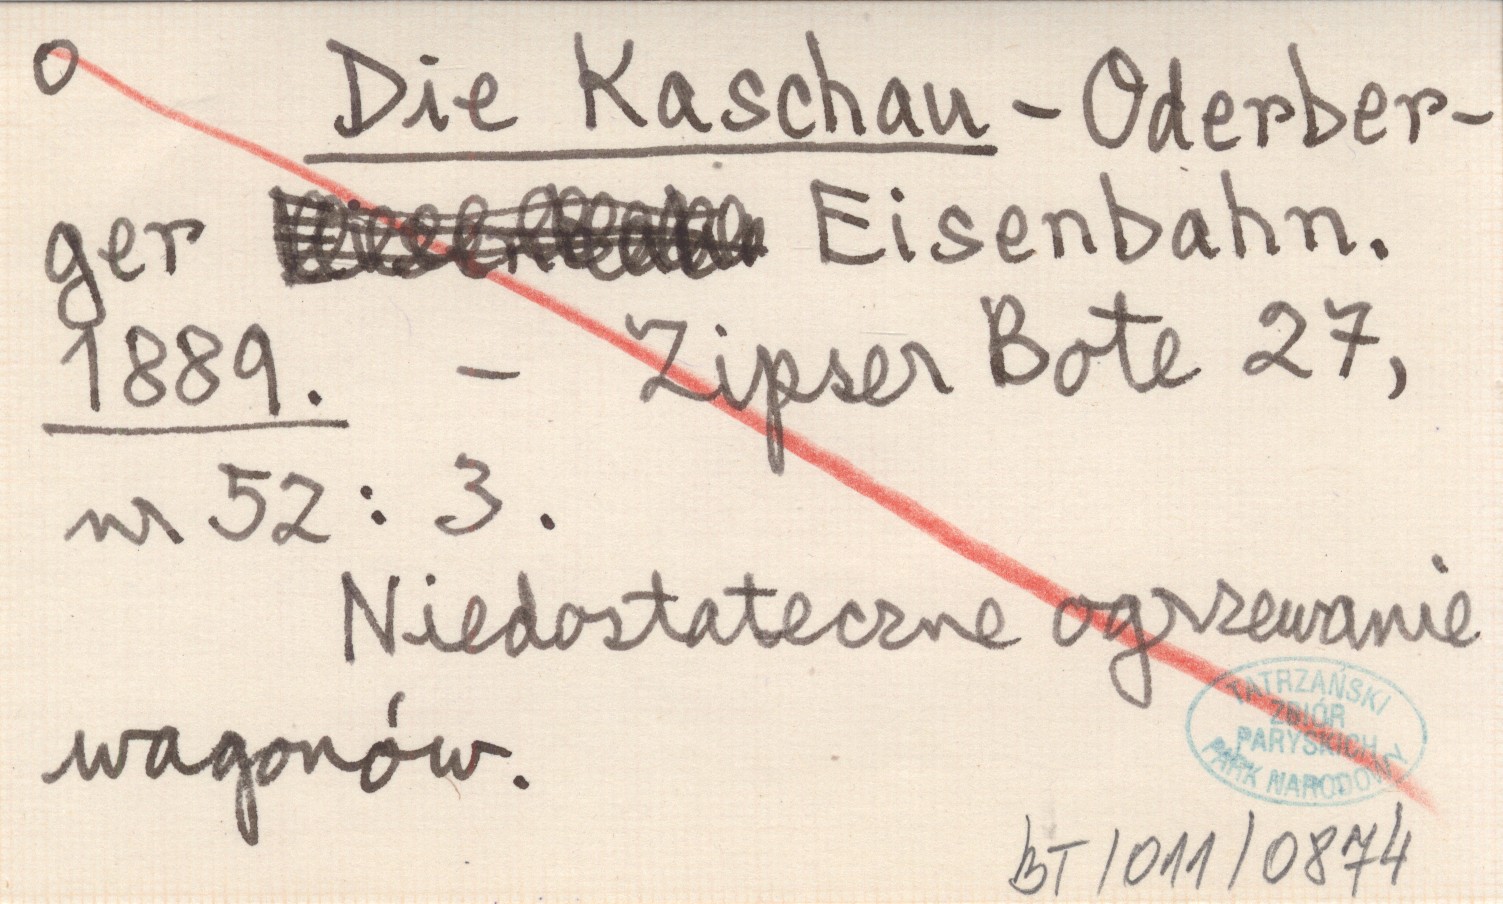 o Die Kaschau - Oderber-
ger Eisenbahn.
1889. - Zipser Bote 27,
nr 52 : 3.
Niedostateczne ogrzewanie
wagonów.
TATRZAŃSKI
ZBIÓR
PARYSKICH
PARK NARODOWY
BT/011/0874